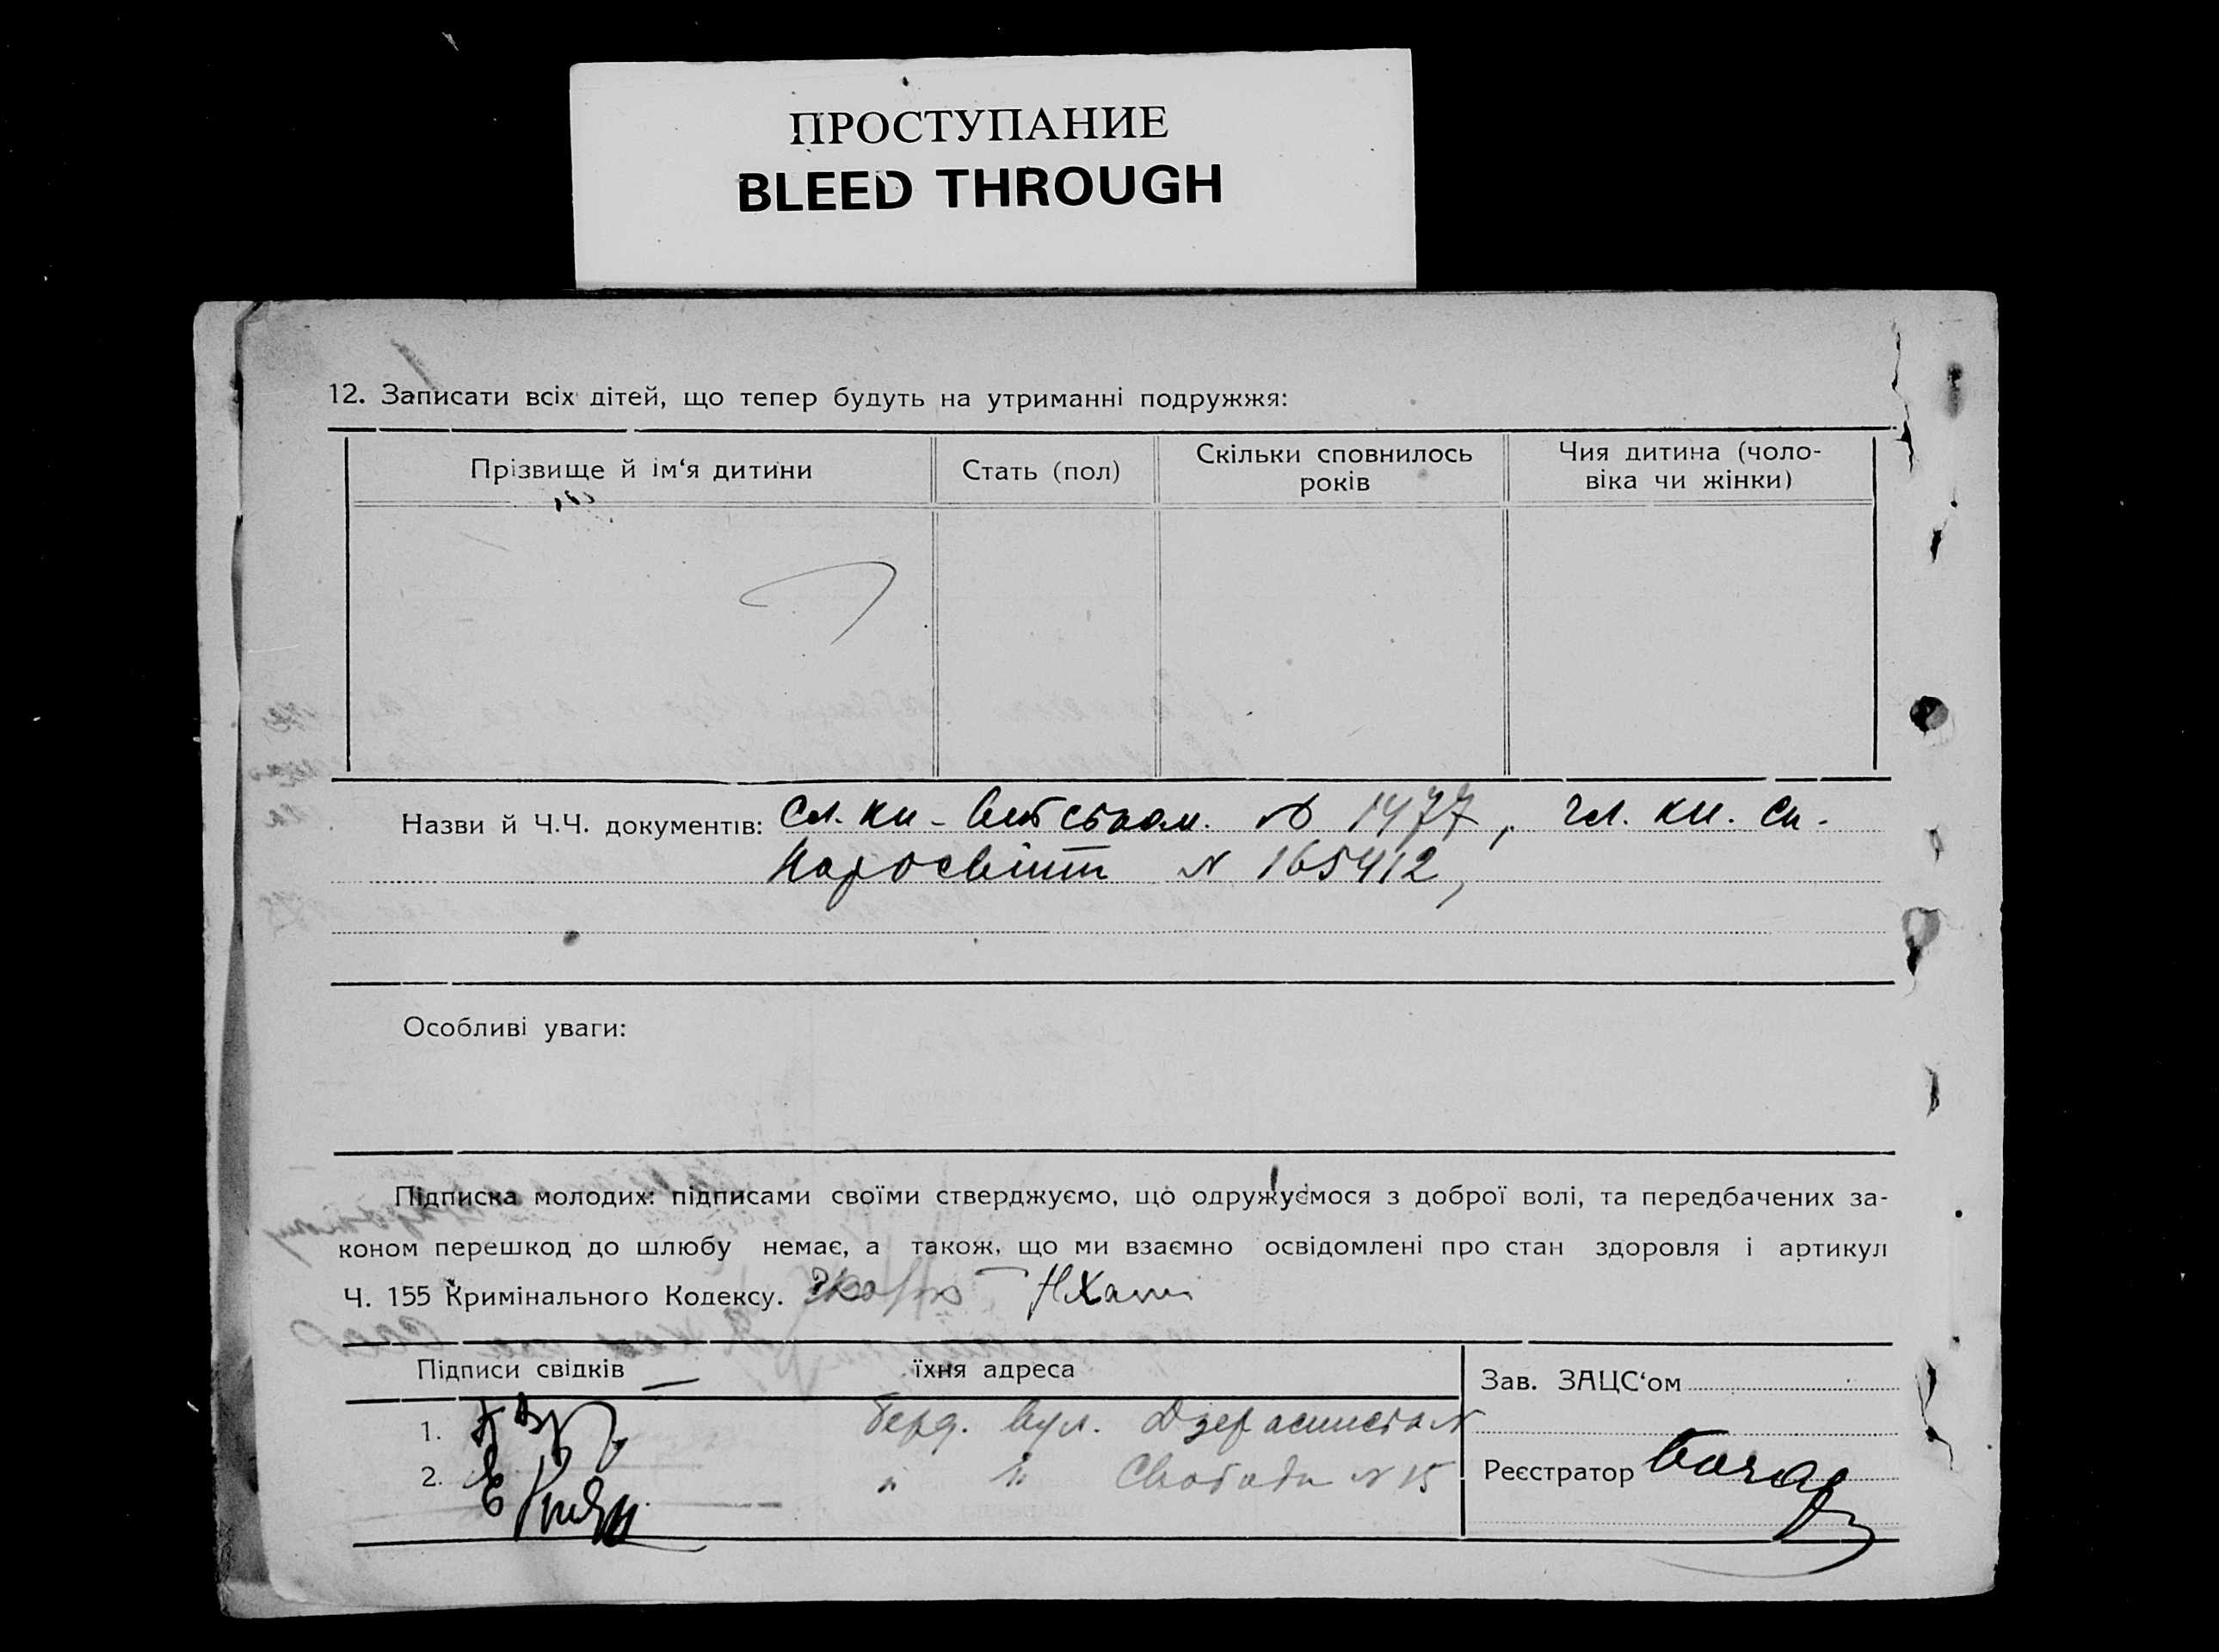 ПРОСТУПАНИЕ
BLEED THROUGH
12. Записати всіх дітей, що тепер будуть на утриманні подружжя:
Прізвище й ім‘я дитини
Стать (пол)
Скільки сповнилось
років
Чия дитина (чоло-
віка чи жінки)
Назви й Ч.Ч. документів: Сл. кн - № 1477, чл. кн. сп.
Наросвіти N 165412,
Особливі уваги:
Підписка молодих: підписами своїми стверджуємо, що одружуємося з доброї волі, та передбачених за-
коном перешкод до шлюбу немає, а також, що ми взаємно освідомлені про стан здоровля і артикул
Ч. 155 Кримінального Кодексу.
Підписи свідків
їхня адреса
Зав. ЗАЦС‘ом
1. Берд. вул. N
2. " " Свободи N 15
Реєстратор